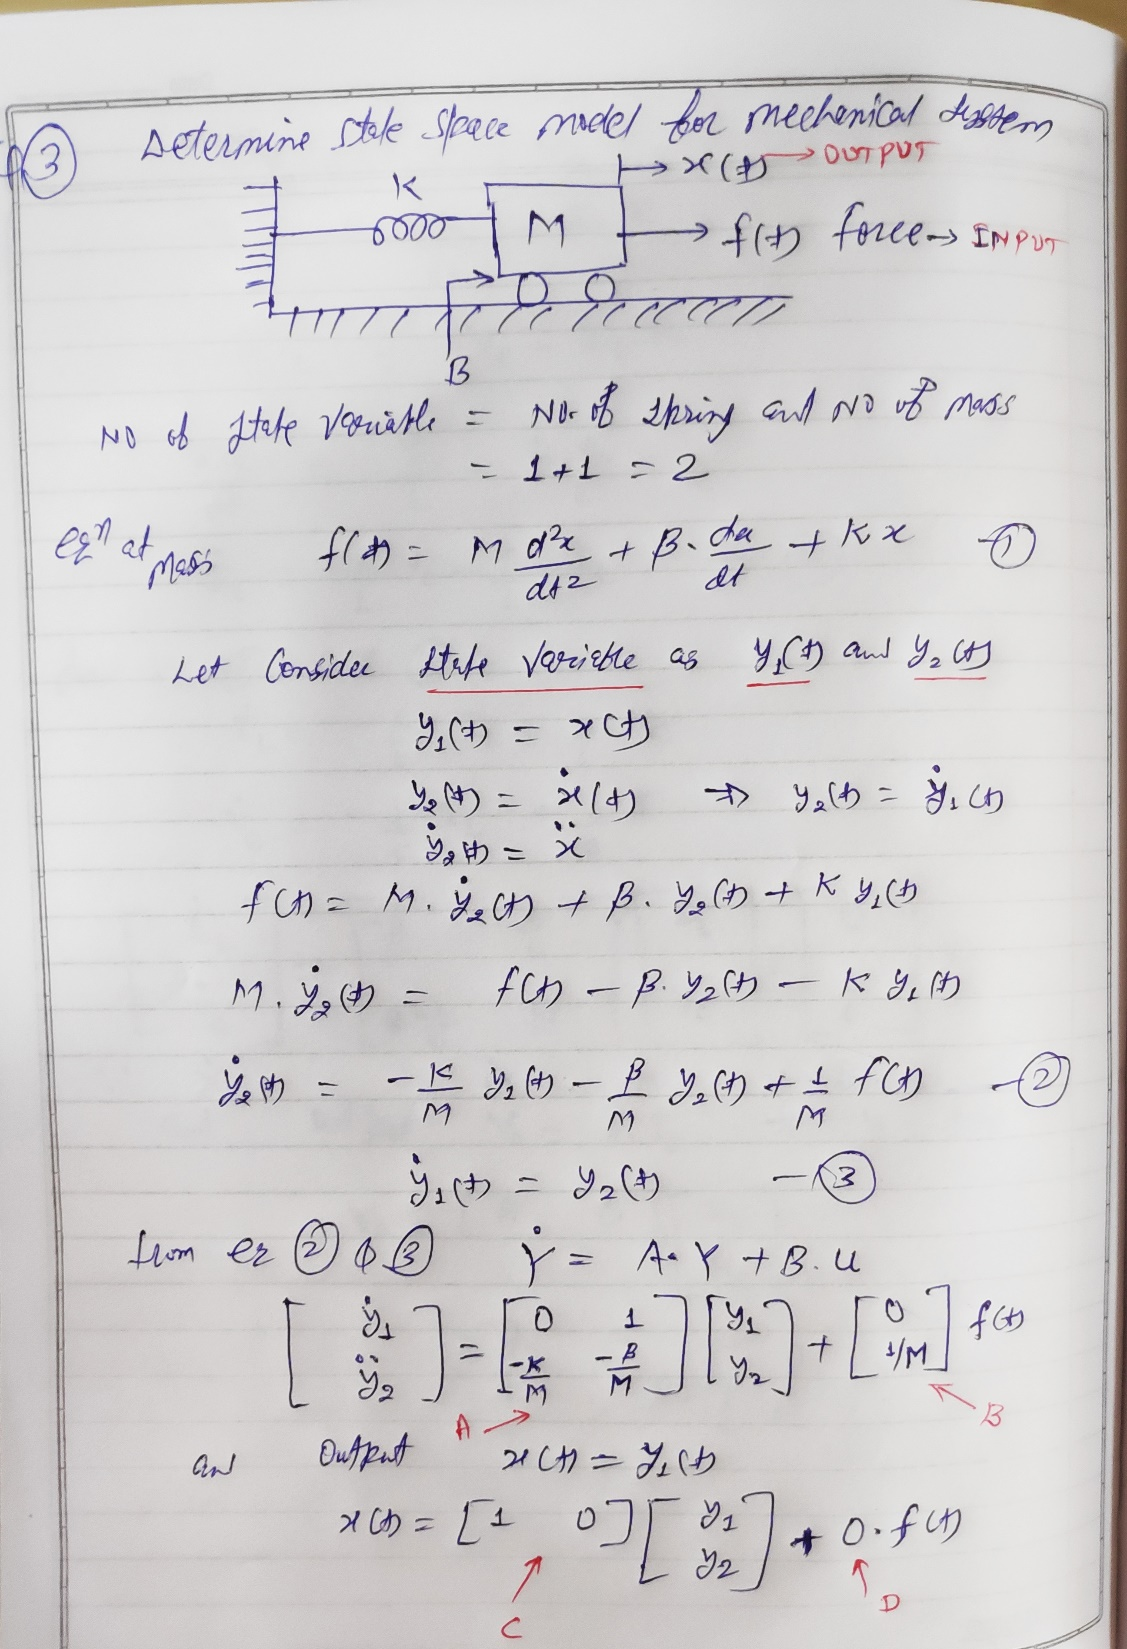 ③ Determine state space model for mechanical system
K
M
→ x(t) → OUTPUT
→ f(t) force → INPUT
B
No of state variable = No. of spring and No of mass
= 1+1 = 2
eqⁿ at mass f(t) = M d²x/dt² + B. dx/dt + Kx —①
Let Consider state variable as y₁(t) and y₂(t)
y₁(t) = x(t)
y₂(t) = ẋ(t) ⇒ y₂(t) = ẏ₁(t)
ẏ₂(t) = ẍ
f(t) = M. ẏ₂(t) + B. y₂(t) + K y₁(t)
M. ẏ₂(t) = f(t) – B. y₂(t) – K y₁(t)
ẏ₂(t) = -K/M y₁(t) – B/M y₂(t) + 1/M f(t) —②
ẏ₁(t) = y₂(t) —③
from eq ② & ③ Ẏ = A.Y + B.U
[ẏ₁ ; ÿ₂] = [0 1 ; -K/M -B/M] [y₁ ; y₂] + [0 ; 1/M] f(t)
A B
and Output x(t) = y₁(t)
x(t) = [1 0] [y₁ ; y₂] + 0.f(t)
C D